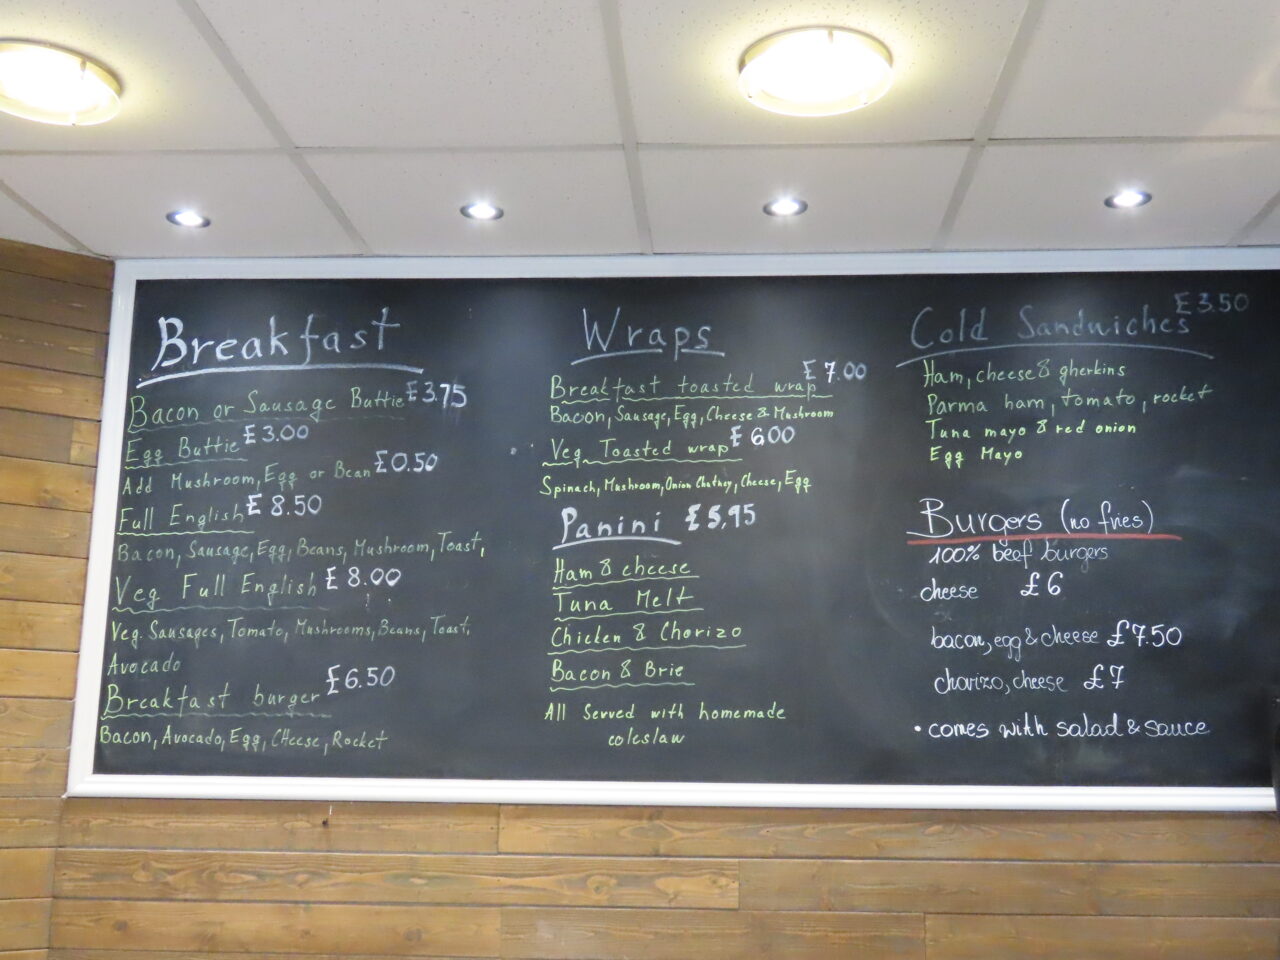 Breakfast
Bacon or Sausage Buttie £3.75
Egg Buttie £3.00
Add Mushroom, Egg or Bean £0.50
Full English £8.50
Bacon, Sausage, Egg, Beans, Mushroom, Toast,
Veg Full English £8.00
Veg. Sausages, Tomato, Mushrooms, Beans, Toast,
Avocado
Breakfast burger £6.50
Bacon, Avocado, Egg, CHeese, Rocket
Wraps
Breakfast toasted wrap £7.00
Bacon, Sausage, Egg, Cheese & Mushroom
Veg Toasted wrap £600
Spinach, Mushroom, Onion Chutney, Cheese, Egg
Panini £5,95
Ham & cheese
Tuna Melt
Chicken & Chorizo
Bacon & Brie
All Served with homemade
coleslaw
Cold Sandwiches £3.50
Ham, cheese & gherkins
Parma ham, tomato, rocket
Tuna mayo & red onion
Egg Mayo
Burgers (no fries)
100% beef burgers
cheese £6
bacon, egg & cheese £7.50
chorizo, cheese £7
• comes with salad & sauce